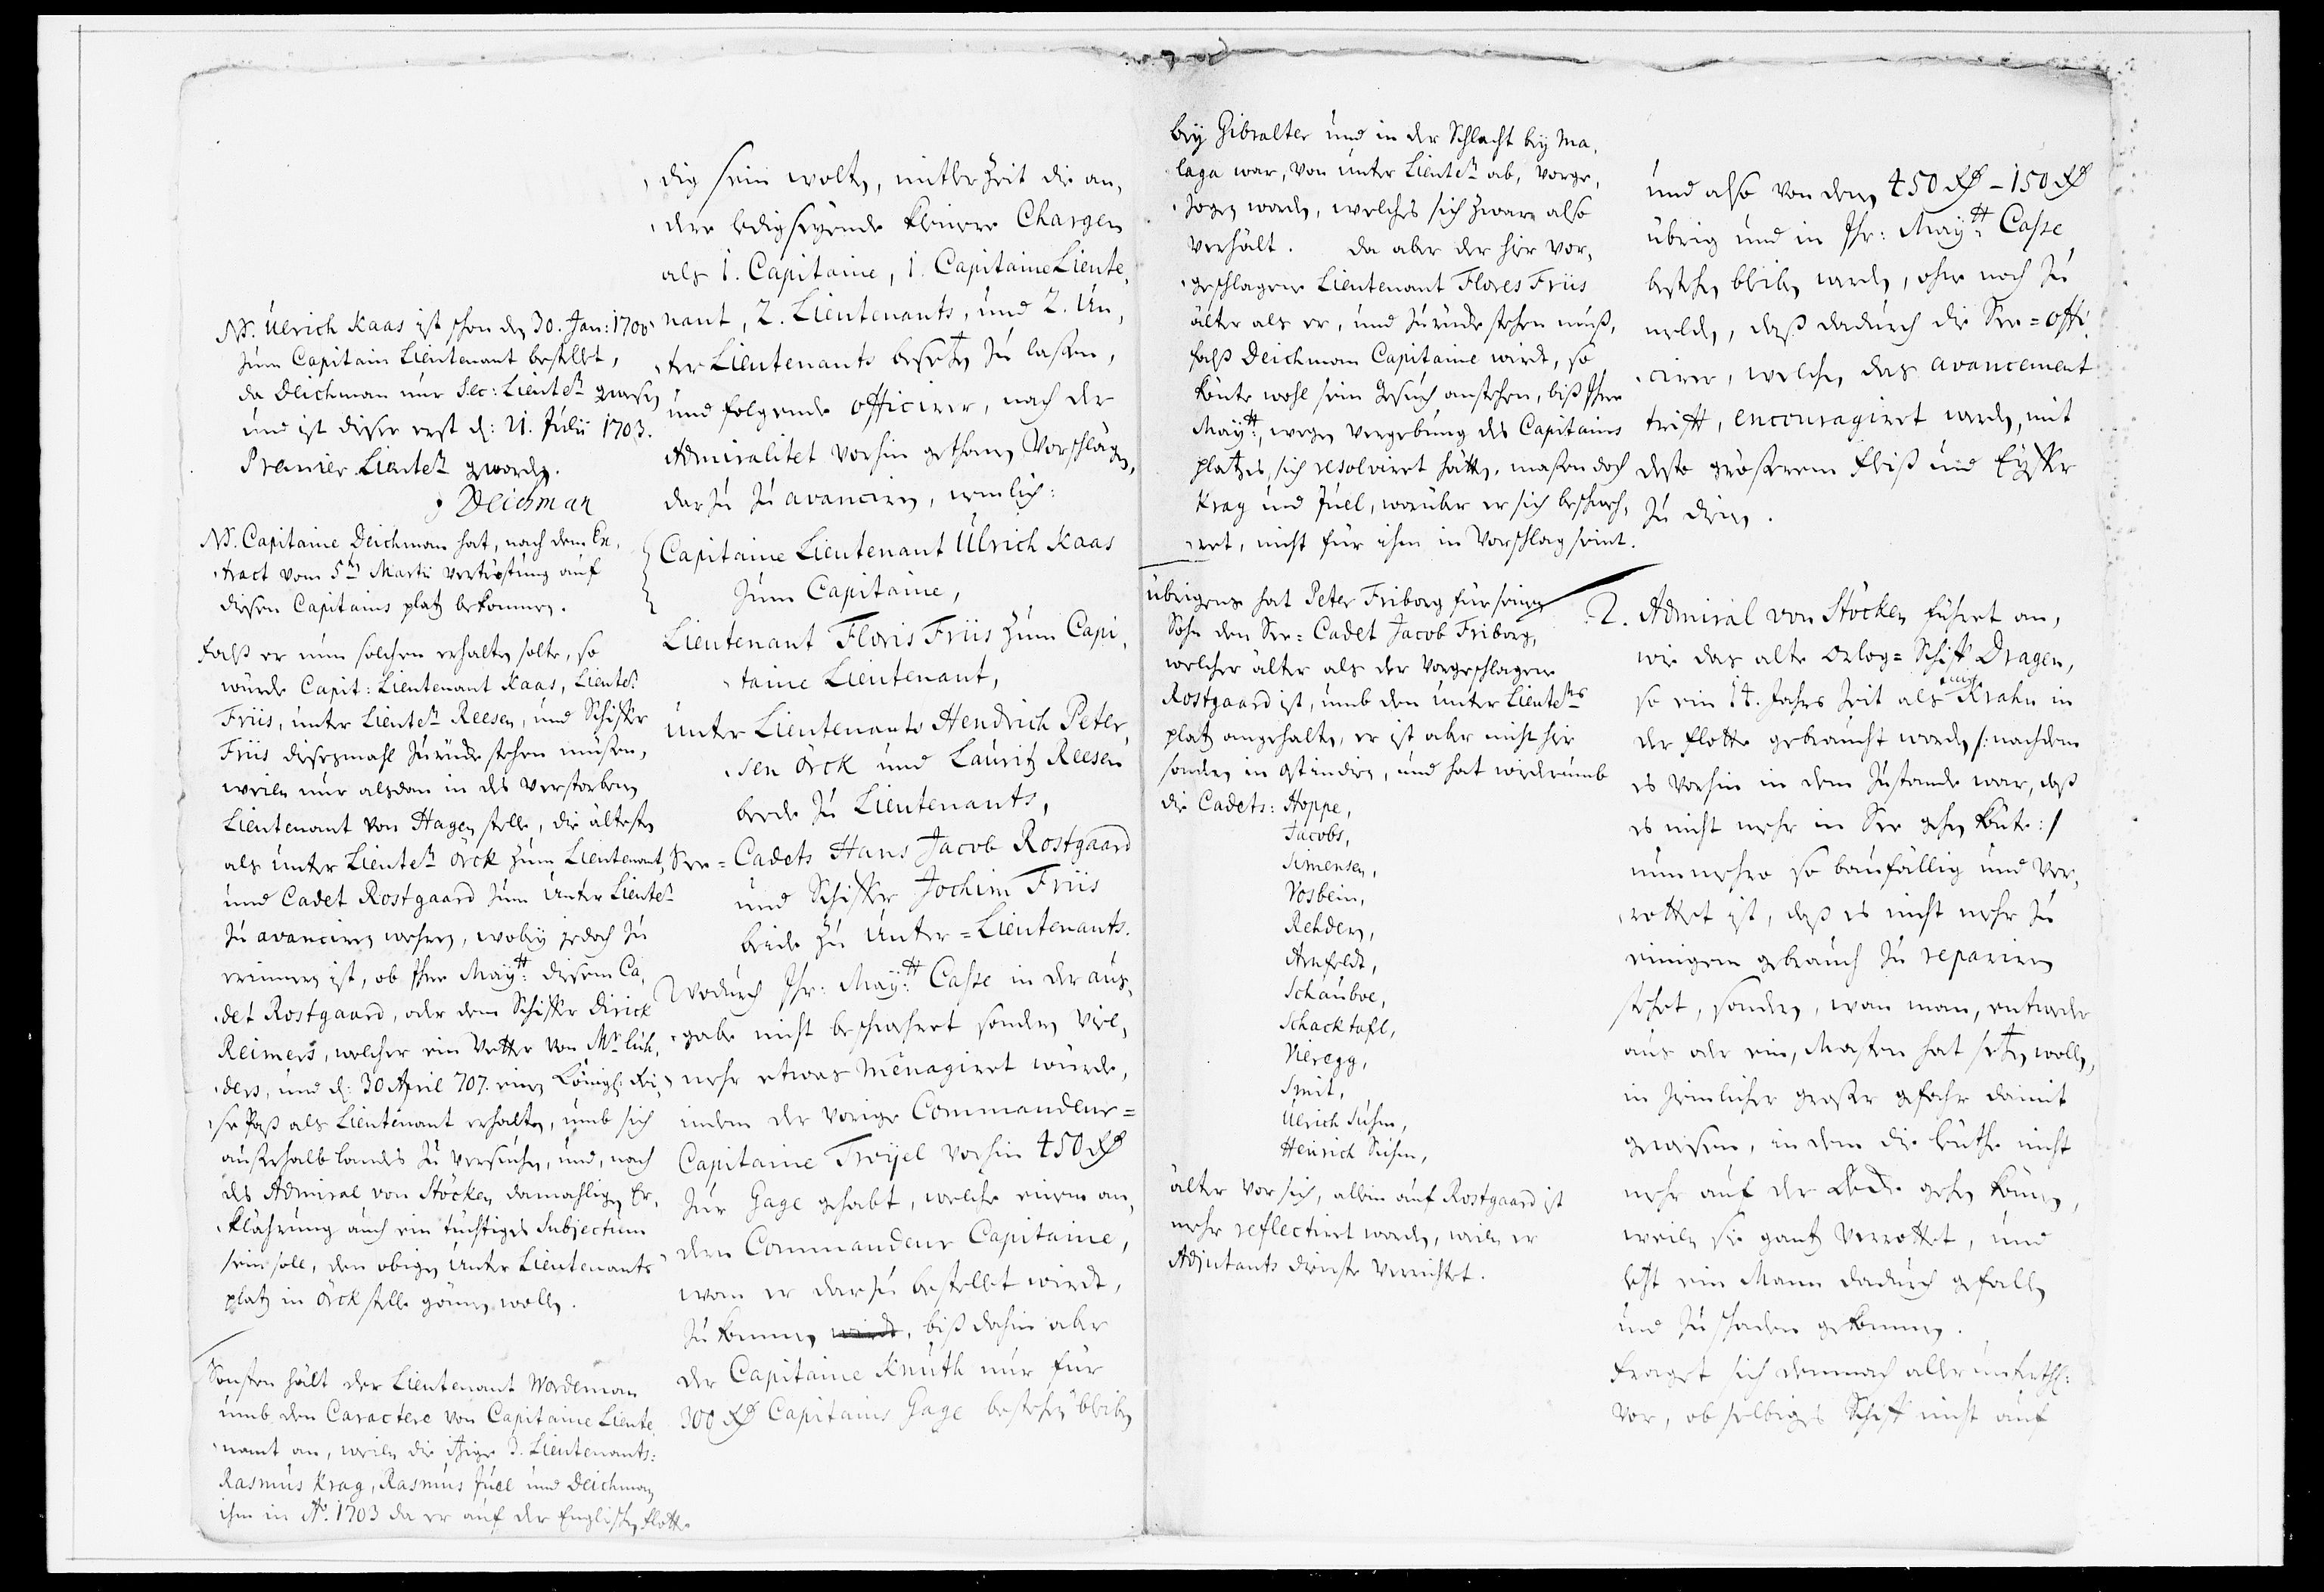 NB. Ulrich Kaas ist schon den 30. Jan: 1700
zum Capitain Lieutenant bestellet,
da Deichman nur Sec: Lieuten: gewesen
und ist dieser erst d: 21. Julii 1703.
Premier Lieuten: geworden.
Deichman
NB. Capitaine Deichman hat, nach dem Ex,
tract vom 5ten Martii vertröstung auf
diesen Capitains platz bekommen.
Falß er nun solchen erhalten solte, so
würde Capit: Lieutenant Kaas, Lieuten:
Friis, unter Lieuten: Reesen, und Schiffer
Friis dießesmahl zurücke stehen müßen,
weiln nur alsdan in des verstorbenen
Lieutenant von Hagen stelle, die älteste
als unter Lieuten: Örck zum Lieutenant,
und Cadet Rostgaard zum Unter Lieuten:
zu avanciren wehren, wobey jedoch zu
erinnern ist, ob Ihre Maytt: diesem Ca,
det Rostgaard, oder dem Schiffer Dirick
Reimers, welcher ein Vetter von Mr Lüh,
ders, und d: 30 April 707. einen Königl: Rei,
se Paß als Lieutenant erhalten, umb sich
außerhalb landes zu versuchen, und, nach
des Admiral von Stöcken damahligen Er,
klährung auch ein tüchtiges Subjectum
sein soll, den obigen Unter Lieutenants
platz in Örck stelle gönnen wollen.
Sonsten hält der Lieutenant Wordeman
umb den Caractere von Capitaine Lieute
nant an, weiln die itzige 3. Lieutenants:
Rasmus Krag, Rasmus Juel und Deichman
ihm in Ao. 1703 da er auf der Englischen Flotte
dig sein wolten, mitlerzeit die an,
dere ledigseyende kleinere Chargen
als 1. Capitaine, 1. Capitaine Lieute,
nant, 2. Lieutenants, und 2. Un,
ter Lieutenants besetzen zu laßen,
und folgende officirer, nach der
Admiralitet vorhin gethanen Vorschlägen,
darzu zu avanciren, nemlich:
Capitaine Lieutenant Ulrich Kaas
zum Capitaine,
Lieutenant Floris Friis zum Capi,
taine Lieutenant,
unter Lieutenants Hendrich Peter,
sen Örck und Lauritz Reesen
beede zu Lieutenants,
See=Cadets Hans Jacob Rostgaard
und Schiffer Jochim Friis
beide zu Unter=Lieutenants.
Wodurch Ihr: Mayt: Casse in der aus,
gabe nicht beschwehret sondern viel,
mehr etwas menagiret würde,
indem der vorige Commandeur=
Capitaine Troyel vorhin 450 Rd
zur Gage gehabt, welche einem an,
dern Commandeur Capitaine,
wan er darzu bestellet wirdt,
zu kommen wirdt, biß dahin aber
der Capitaine Knuth nur für
300 Rd Capitains Gage bestehen bleiben
bey Gibralter und in der Schlacht bey Ma,
laga war, von unter Lieuten: ab, vorge,
zogen worden, welches sich zware also
verhält. Da aber der hier vor,
geschlagene Lieutenant Flores Friis
älter als er, und zurücke stehen muß,
falß Deichman Capitaine wirdt, so
könte wohl sein Gesuch anstehen, biß Ihre
Maytt:, wegen vergebung des Capitains
platzes, sich resolviret hätten, maßen doch
Krag und Juel, worüber er sich beschweh,
ret, nicht für ihm in Vorschlag seint.
übrigens hat Peter Friborg für seinen
Sohn den See=Cadet Jacob Friborg,
welcher älter als der vorgeschlagene
Rostgaard ist, umb den unter Lieutents
platz angehalten, er ist aber nicht hie
sondern in Ostindien, und hat wiederumb
die Cadets: Hoppe,
Jacobs,
Simensen,
Vosbein,
Rehders,
Arnfeldt,
Schauboe,
Schacktafl,
Vieregg,
Smit,
Ulrich Suhm,
Heinrich Suhm,
älter vor sich, allein auf Rostgaard ist
mehr reflectiret worden, weiln er
Adjutants dienste verrichtet.
und also von denen 450 Rd – 150 Rd
übrig und in Ihr: Maytt: Casse
bestehen bleiben werden, ohne noch zu
melden, daß dadurch die See=offi,
cirer, welchen das avancement
trifft, encouragiret werden, mit
desto größerem Fleiß und Eyffer
zu dienen.
2. Admiral von Stöcken führet an,
wie das alte Orlog=Schiff Dragen,
so ein 14. Jahrs Zeit als eine Krahn in
der Flotte gebraucht worden /: nachdem
es vorhin in dem Zustande war, daß
es nicht mehr in See gehen könte :/
nunmehro so baufällig und ver,
rottet ist, daß es nicht mehr zu
einigem gebrauch zu repariren
stehet, sondern, wan man, entweder
aus oder ein, Masten hat setzen wollen,
in zimlicher großer gefahr damit
gewesen, in dem die leuthe nicht
mehr auf der Decke gehen können,
weiln sie gantz verrottet, und
letzt ein Mann dadurch gefallen
und zu schaden gekommen.
Fraget sich demnach allerunterth:
vor, ob selbiges Schiff nicht auf